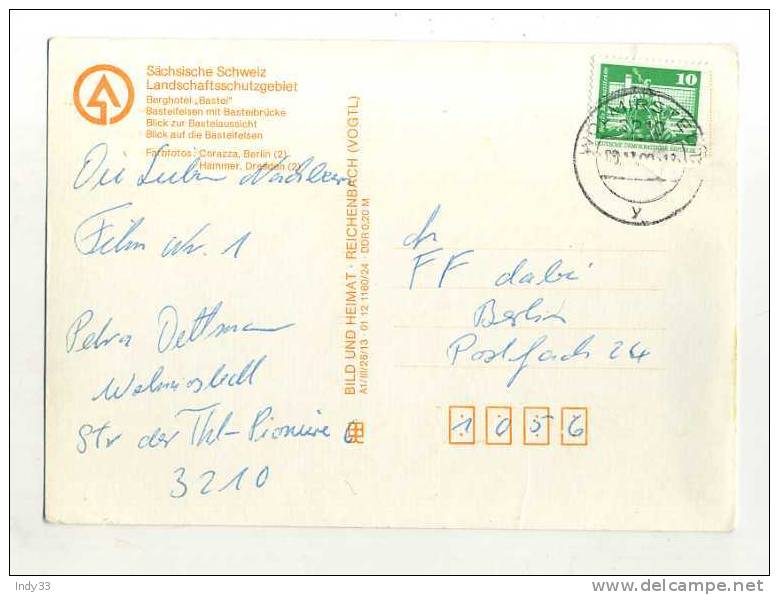 Sächsische Schweiz
Landschaftsschutzgebiet
Berghotel „Bastei"
Basteifelsen mit Basteibrücke
Blick zur Basteiaussicht
Blick auf die Basteifelsen
Farbfotos: Corazza, Berlin (2)
Hammer, Dresden (2)
Die lieben Nachbarn
Film Nr. 1
Petra Dettmann
Wolmirstedt
Str der Thl-Pioniere 6
3210
BILD UND HEIMAT · REICHENBACH (VOGTL)
A1/III/26/13 01 12 1160/24 · DDR 0,20 M
10
DEUTSCHE DEMOKRATISCHE REPUBLIK
y
An
FF dabei
Berlin
Postfach 24
1056
Indy33
delcampe.net